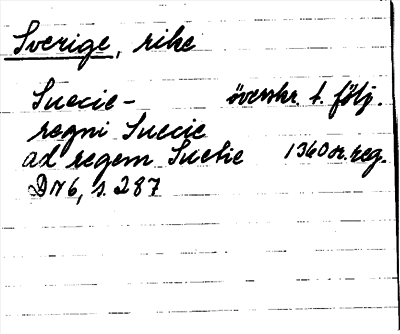 Sverige, rike
Suecie – överskr. t. följ.
regni Suecie
ad regem Suetie 1360 or. reg.
DN 6, s. 287